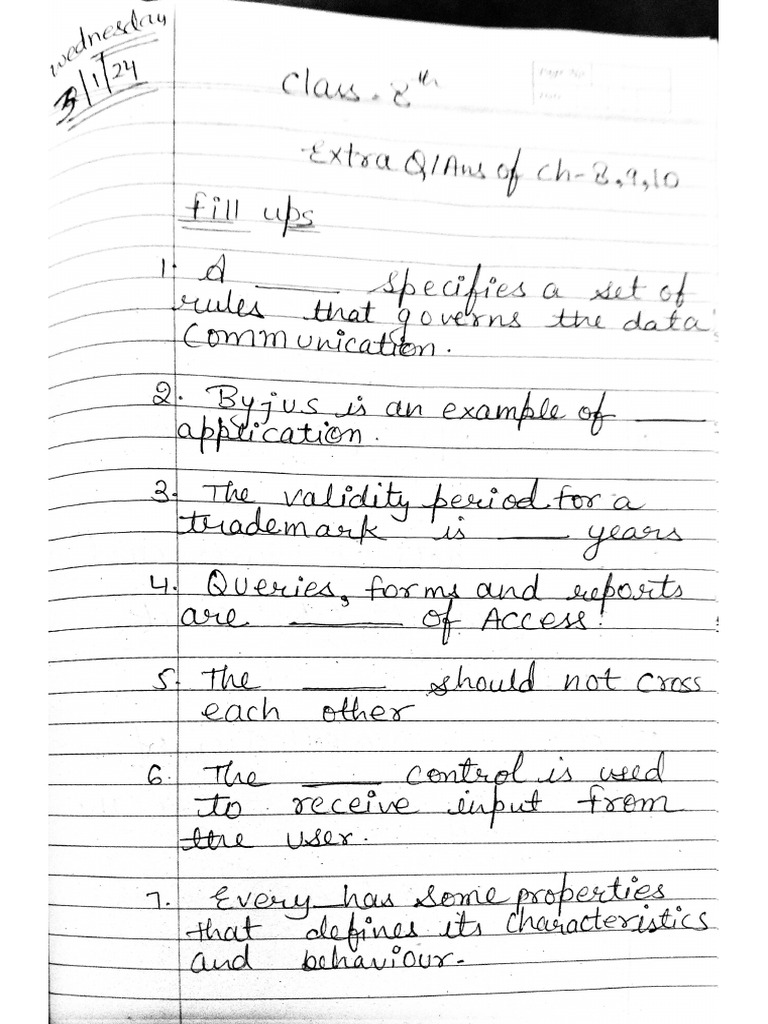 Wednesday
3/1/24
Class. 8th
Page No.
Date
Extra Q/Ans of Ch-8,9,10
fill ups
1. A ____ specifies a set of
rules that governs the data
communication.
2. Byjus is an example of ____
application.
3. The validity period for a
trademark is ____ years
4. Queries, forms and reports
are ____ of Access.
5. The ____ should not cross
each other
6. The ____ control is used
to receive input from
the user.
7. Every has some properties
that defines its characteristics
and behaviour.